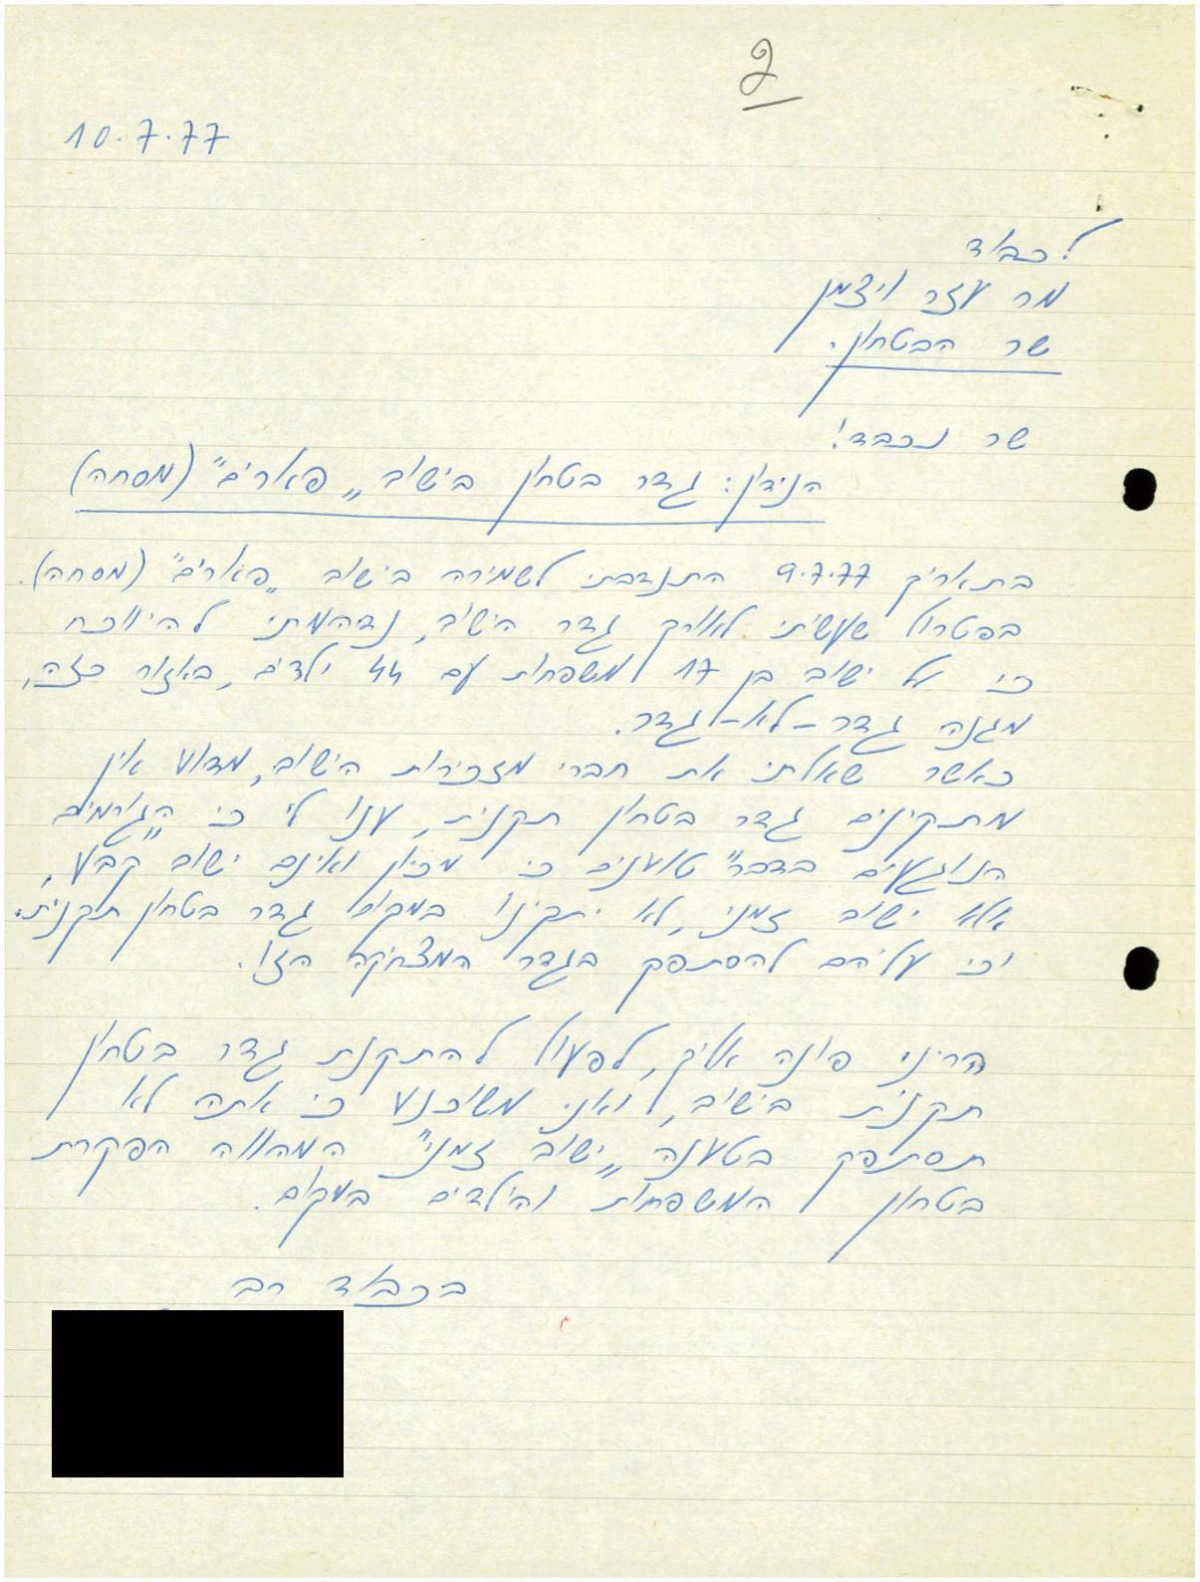 2
10.7.77
לכבוד
מר עזר ויצמן
שר הבטחון.
שר נכבד!
הנידון: גדר בטחון בישוב „פארים" (מסחה)
בתאריך 9.7.77 התנדבתי לשמירה בישוב „פארים" (מסחה).
בפטרול שעשיתי לאורך גדר הישוב, נדהמתי להיווכח
כי על ישוב בן 17 משפחות עם 44 ילדים, באזור כזה,
מגנה גדר-לא-גדר.
כאשר שאלתי את חברי מזכירות הישוב, מדוע אין
מתקינים גדר בטחון תקנית, ענו לי כי „הגורמים
הנוגעים בדבר" טוענים כי מכיון ואינם ישוב קבע,
אלא ישוב זמני, לא יתקינו במקום גדר בטחון תקנית.
וכי עליהם להסתפק בגדר המצחיקה הזו.
הריני פונה אליך, לפעול להתקנת גדר בטחון
תקנית בישוב, ואני משוכנע כי אתה לא
תסתפק בטענה „ישוב זמני" המהווה הפקרת
בטחון המשפחות והילדים במקום.
בכבוד רב